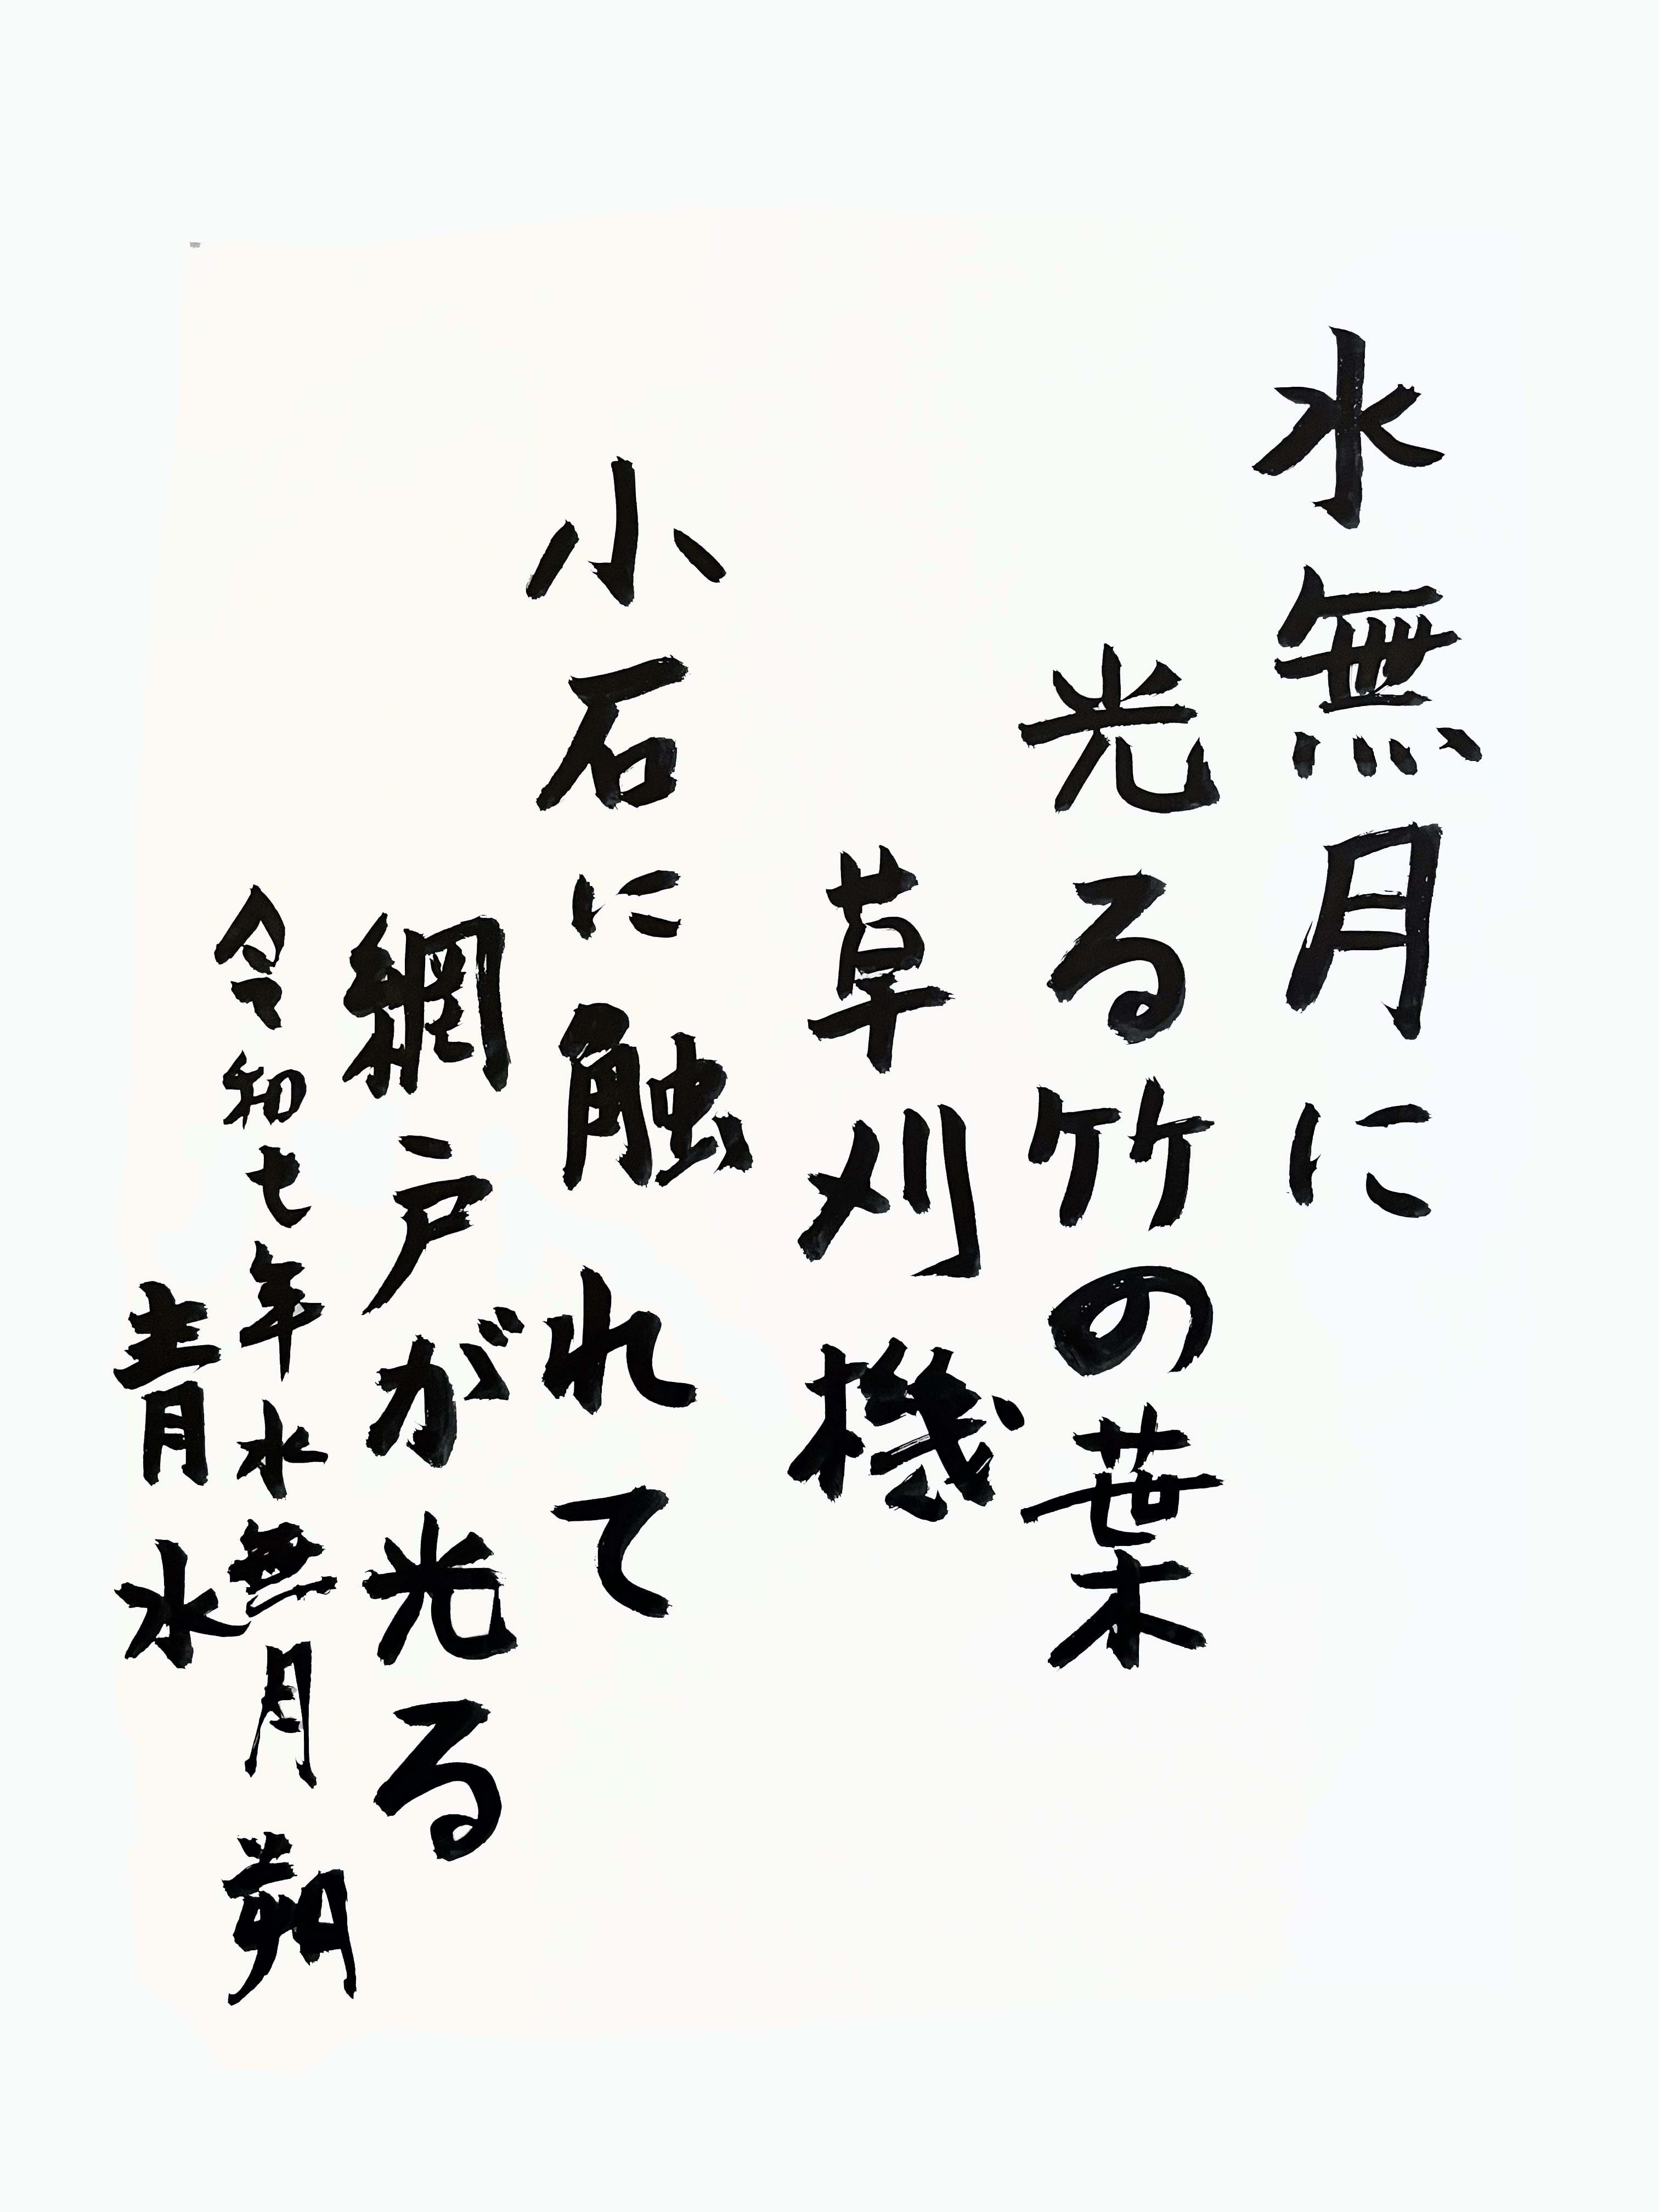 水無月に
光る竹の葉
草刈機
小石に触れて
網戸が光る
令和七年水無月朔
青水